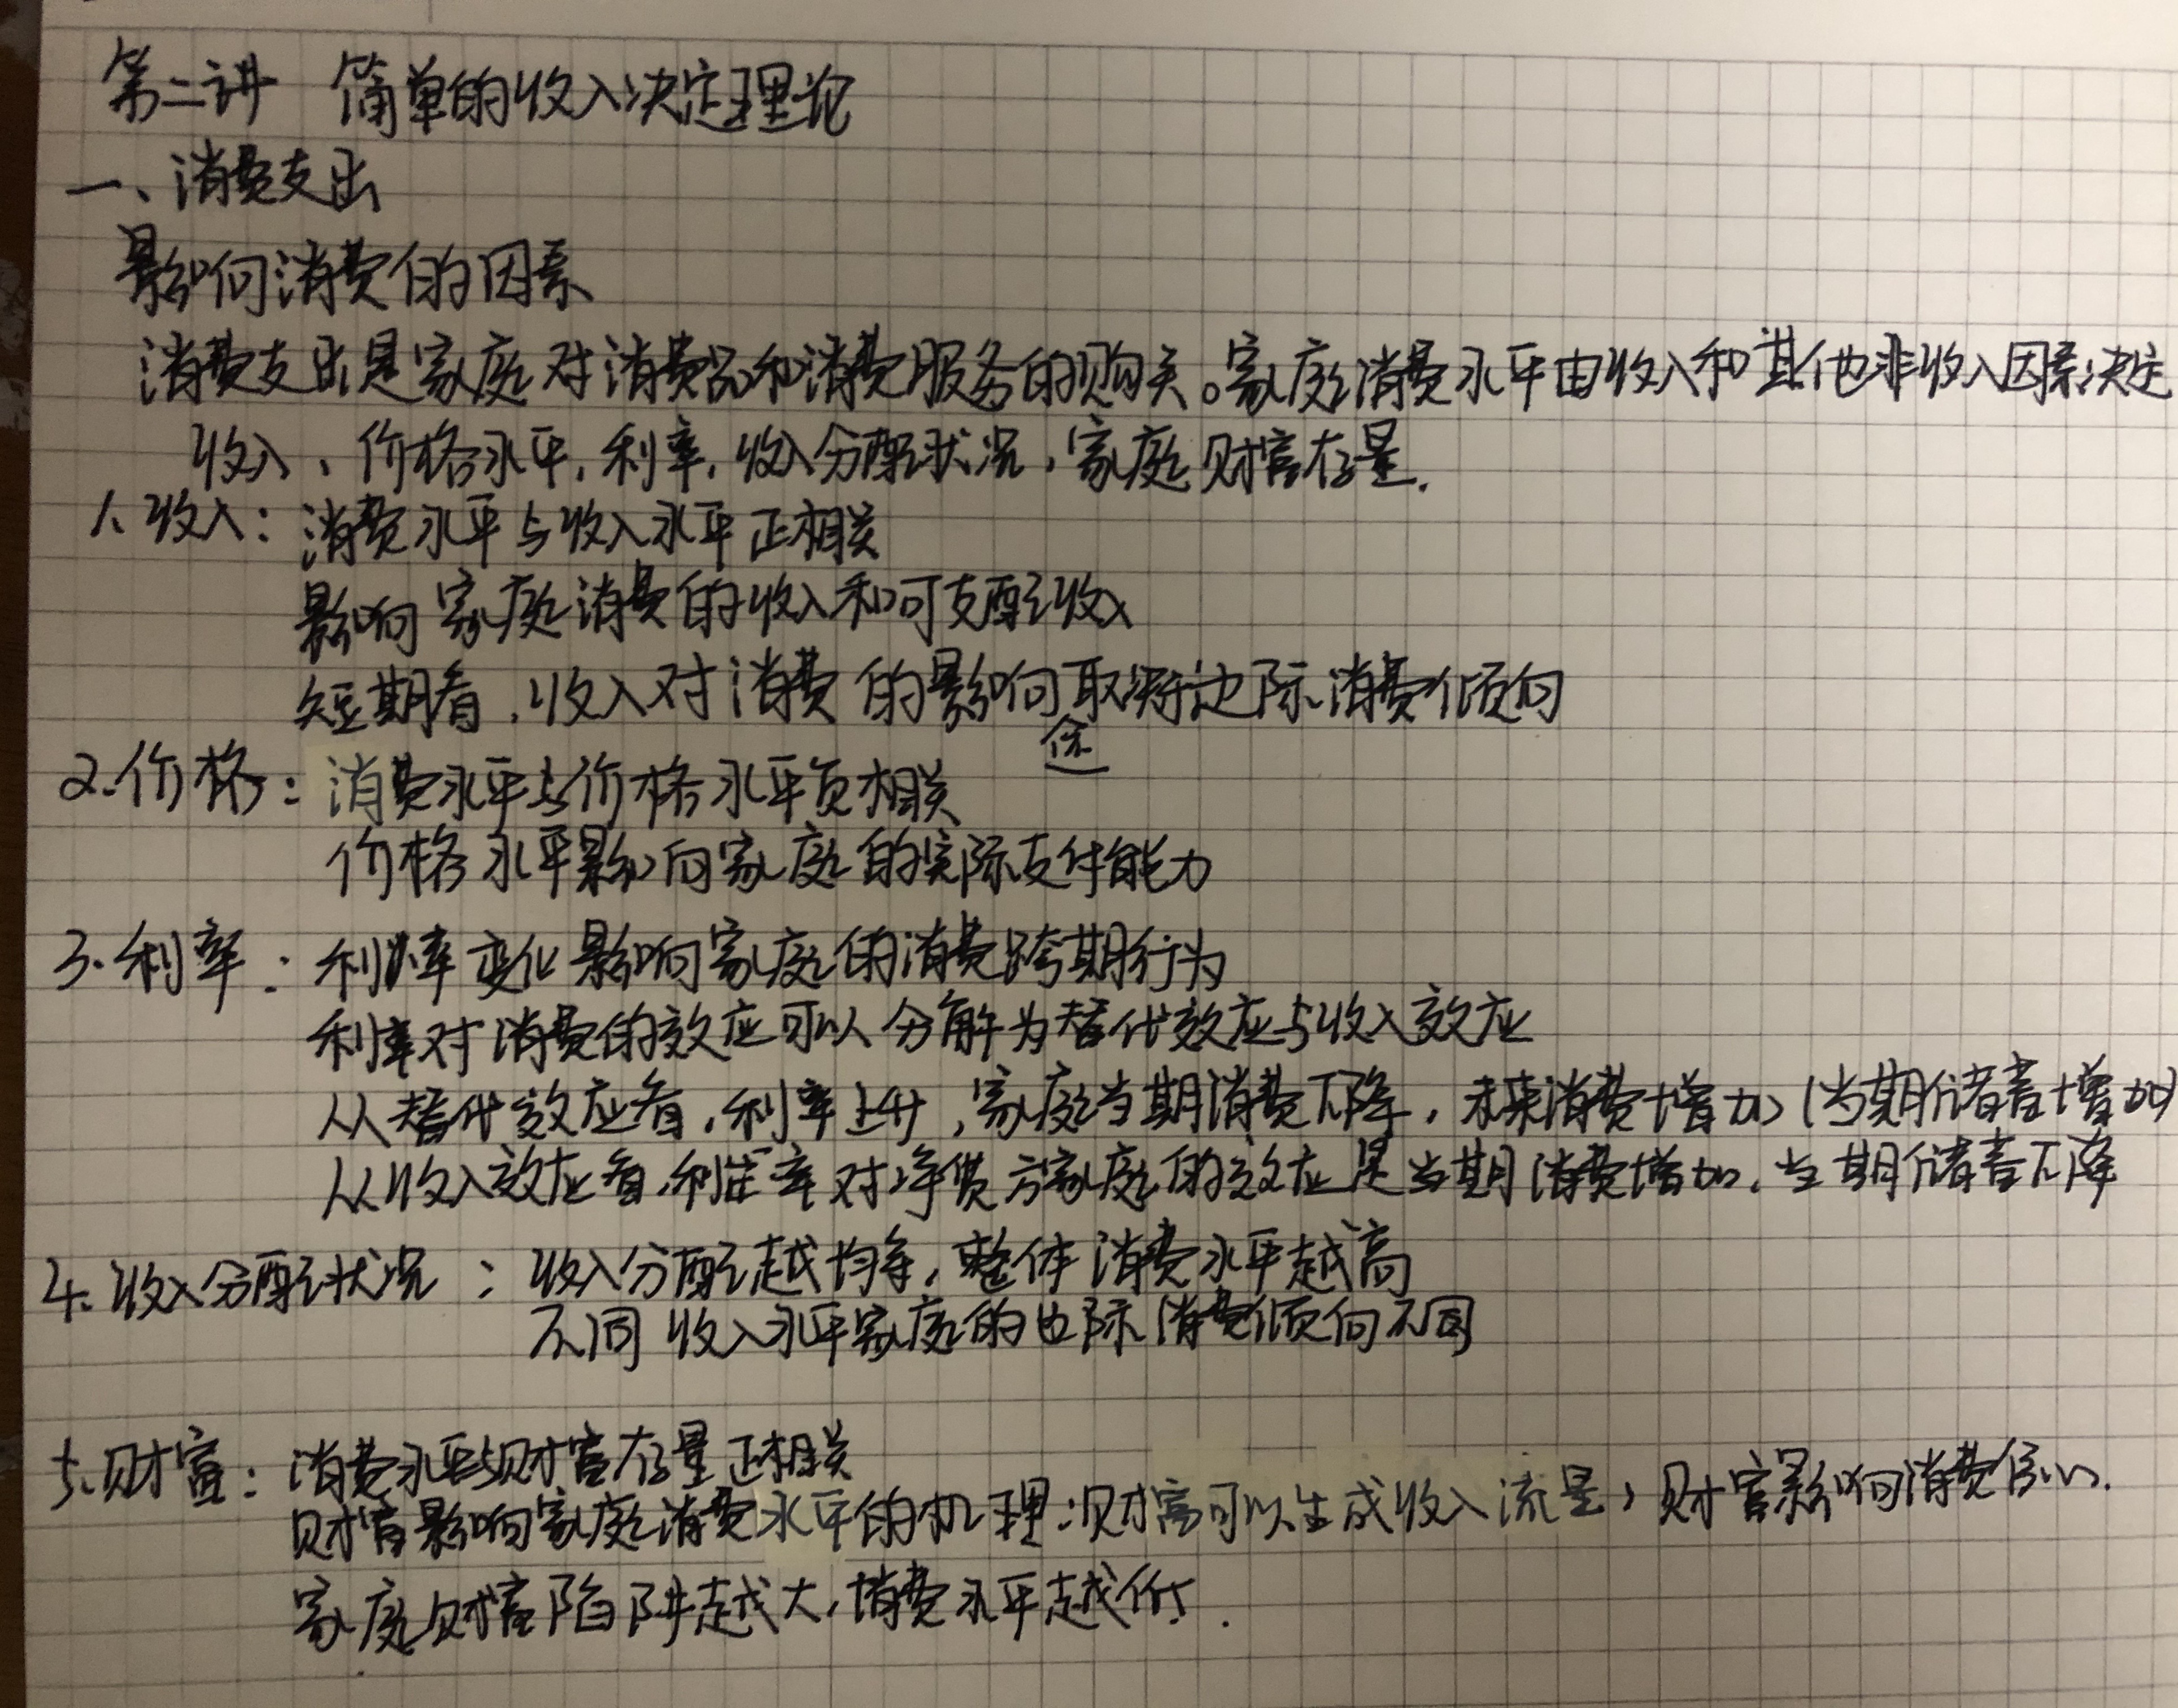 第二讲 简单的收入决定理论
一、消费支出
影响消费的因素
消费支出是家庭对消费品和消费服务的购买。家庭消费水平由收入和其他非收入因素决定
收入、价格水平,利率,收入分配状况,家庭财富存量.
1、收入:消费水平与收入水平正相关
影响家庭消费的收入和可支配收入
短期看,收入对消费的影响取决于边际消费倾向
2.价格:消费水平与价格水平负相关
价格水平影响家庭的实际支付能力
3.利率:利率变化影响家庭的消费跨期行为
利率对消费的效应可以分解为替代效应与收入效应
从替代效应看,利率上升,家庭当期消费下降,未来消费增加(当期储蓄增加)
从收入效应看,利率对净贷方家庭的效应是当期消费增加,当期储蓄下降
4.收入分配状况:收入分配越均等,整体消费水平越高
不同收入水平家庭的边际消费倾向不同
5.财富:消费水平与财富存量正相关
财富影响家庭消费水平的机理:财富可以生成收入流量,财富影响消费信心.
家庭财富陷阱越大,消费水平越低.